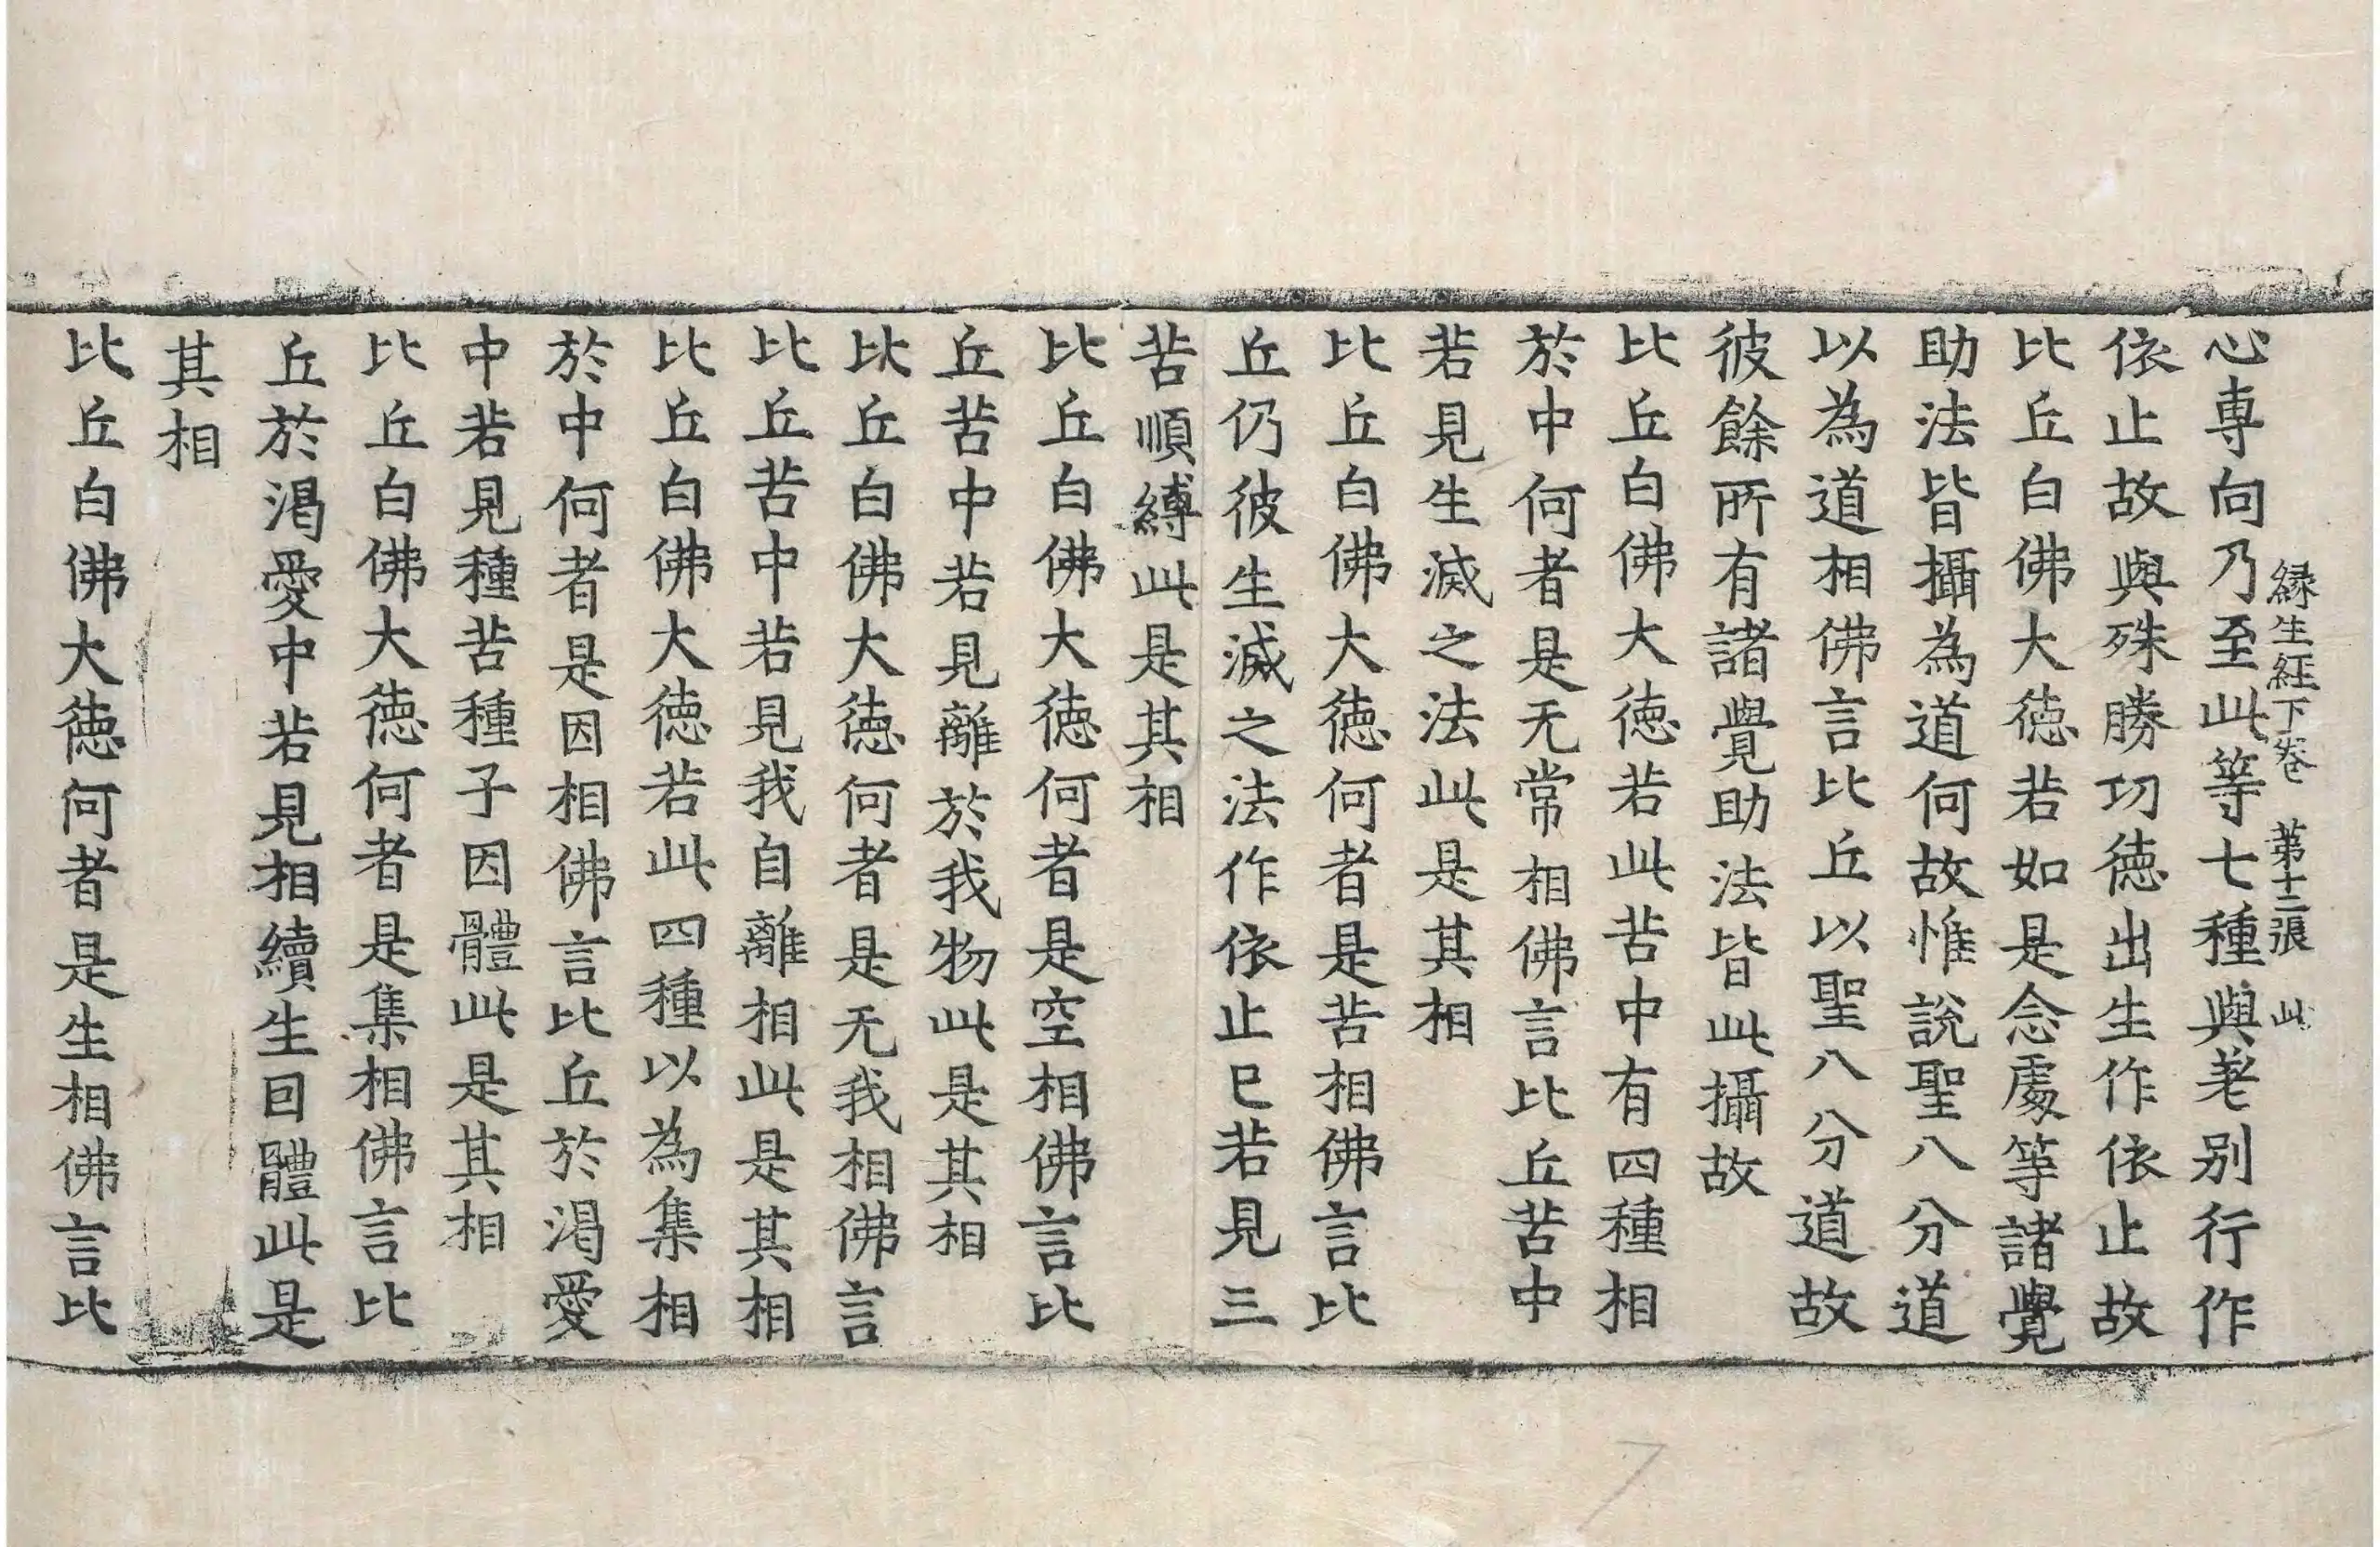 縁生経下卷 第十二張 此
心専向乃至此等七種與差别行作
依止故與殊勝功徳出生作依止故
比丘白佛大徳若如是念處等諸覺
助法皆攝為道何故惟說聖八分道
以為道相佛言比丘以聖八分道故
彼餘所有諸覺助法皆此攝故
比丘白佛大徳若此苦中有四種相
於中何者是无常相佛言比丘苦中
若見生滅之法此是其相
比丘白佛大徳何者是苦相佛言比
丘仍彼生滅之法作依止已若見三
苦順縛此是其相
比丘白佛大徳何者是空相佛言比
丘苦中若見離於我物此是其相
比丘白佛大徳何者是无我相佛言
比丘苦中若見我自離相此是其相
比丘白佛大徳若此四種以為集相
於中何者是因相佛言比丘於渴愛
中若見種苦種子因體此是其相
比丘白佛大徳何者是集相佛言比
丘於渴愛中若見相續生因體此是
其相
比丘白佛大徳何者是生相佛言比